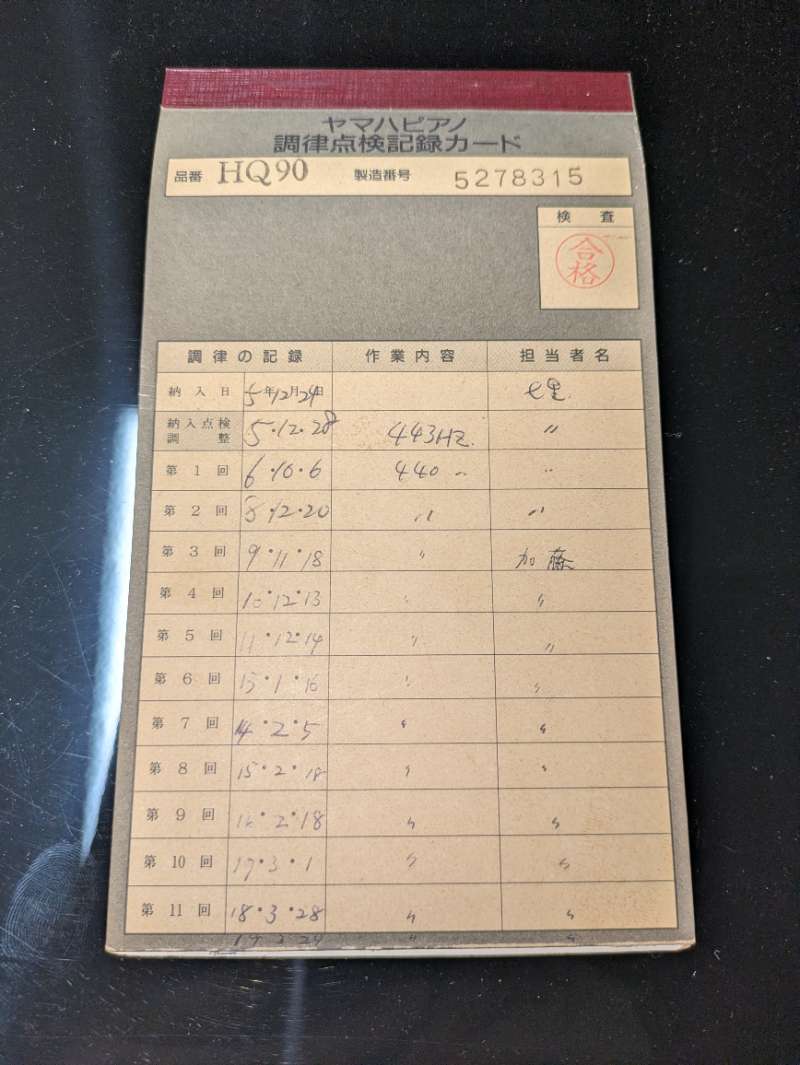 ヤマハピアノ
調律点検記録カード
品番 HQ90 製造番号 5278315
検査
合格
調律の記録 作業内容 担当者名
納入日 5年12月24日 七里
納入点検調整 5・12・28 443HZ. 〃
第1回 6・10・6 440 〃 〃
第2回 8・12・20 〃 〃
第3回 9・11・18 〃 加藤
第4回 10・12・13 〃 〃
第5回 11・12・14 〃 〃
第6回 13・1・16 〃 〃
第7回 14・2・5 〃 〃
第8回 15・2・18 〃 〃
第9回 16・2・18 〃 〃
第10回 17・3・1 〃 〃
第11回 18・3・28 〃 〃